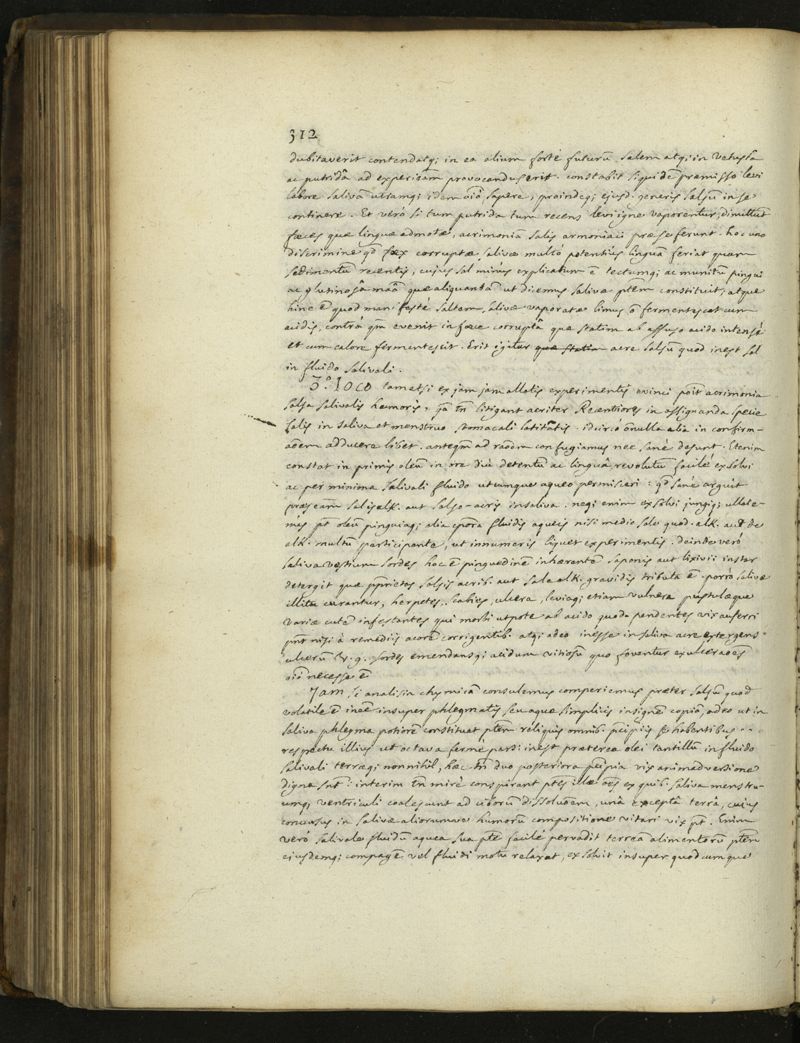 312
dubitaverit contendatq; in ea alium forte futurū salem atq; in vetusta
ac putridâ ad experieām provocandus erit. constabit siquidē premisso levi
labore salivā utramq; idem oīo sapere, proindeq; ejusd. generis salsū in se
continere. Et verò si tum putrida tum recens levi igne vaporentur, dimittunt
fæces quæ linguæ admotæ, acrimoniā salis armoniaci præ se ferunt. hoc uno
discrimine qd fæx corruptæ salivæ multò potentius linguā feriat quam
sedimentū recentis, cujus sal minus explicatum ē tectumq; ac munitū pingui
ac glutinosâ māā quæ aliquantā ut dicemus salivæ ptem constituit, atque
hinc ē quod manifestè saltem, salivæ vaporatæ limus ō fermentescat cum
acidis, contrà qm evenit in fæce corruptâ quæ statim ab affuso acido intensè
et cum calore fermentescit. Erit igitur acre salsū quod inest sal
in fluido salivali.
3.º loco tametsi ex jam jam allatis experimentis evinci poīt acrimonia
salsa salivalis humoris, qa tn litigant acriter Recentiores in assignanda specie
salis in saliva et menstruo stomacali latitātis. idcirco ōnulla alia in confirm-
āōem adducere libet. anteqm ad raōem confugiamus nec sanè desunt. Etenim
constat in primis oleū in ore diu detentū ac linguâ revolutū facilè exsolvi
ac per minima salivali fluido utcumque aqueo permisceri: qd sanè arguit
præseām salis alk. aut salso-acris in saliva. neq; enim exsolvi jungiq; ullate-
nùs pt oleū pinguiaq; alia cpora fluidis aqueis nisi medio sale quod. alk. aut de
alk. multū participante, ut innumeris liquet experimentis. deinde verò
saliva vestium sordes hoc ē pinguedinē inhærentē saponis aut lixivii instar
detergit quæ pprietas salsis acrib. aut sale alk. gravidis tributa ē. porrò salivæ
illitu curantur, herpetes, scabies, ulcera, leviaq; etiam vulnera pustulæque
variæ cutē infestantes qui morbi utpote ab acido quodā pendentes vix auferri
pnt nisi à remediis acorē corrigentib. atq; adeo inesse in saliva acre extergens
ulcerū v. g. sordes emendansq; acidum vitiosū quo foventur exulceraōes
oīō necesse ē
Jam, si analisin chymicā consulemus comperiemus præter salsū quod
volatile ē ineē insuper phlegmatis seu aquæ simplicis insignē copiā, adeo ut in
saliva phlegma potiorē constituat ptem reliquis omnib. pcipiis se habentibus
respectu illius ut octava fermè pars. inest præterea olei tantillū in fluido
salivali terræq; nonnihil, hæc tn duo posteriora pcipia vix animadversione
digna snt: interim tn mirè conspirant ptes illæ oēs ex quib. saliva menstru-
umq; ventriculi coalescunt ad ciborū dissoluōem, unâ exceptâ terrâ, cujus
concursus in salivæ aliorumve humorū compositione vitari vix pt. Enim
verò salivale fluidū aquea sua pte facilè pervadit terreā alimentorū ptem
ejusdemq; compagē vel fluidi motu relaxat, exsolvit insuper quodcumque